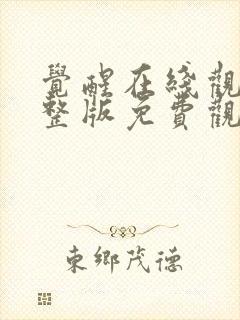 覺醒在綫觀
整版免費觀
東鄉茂德